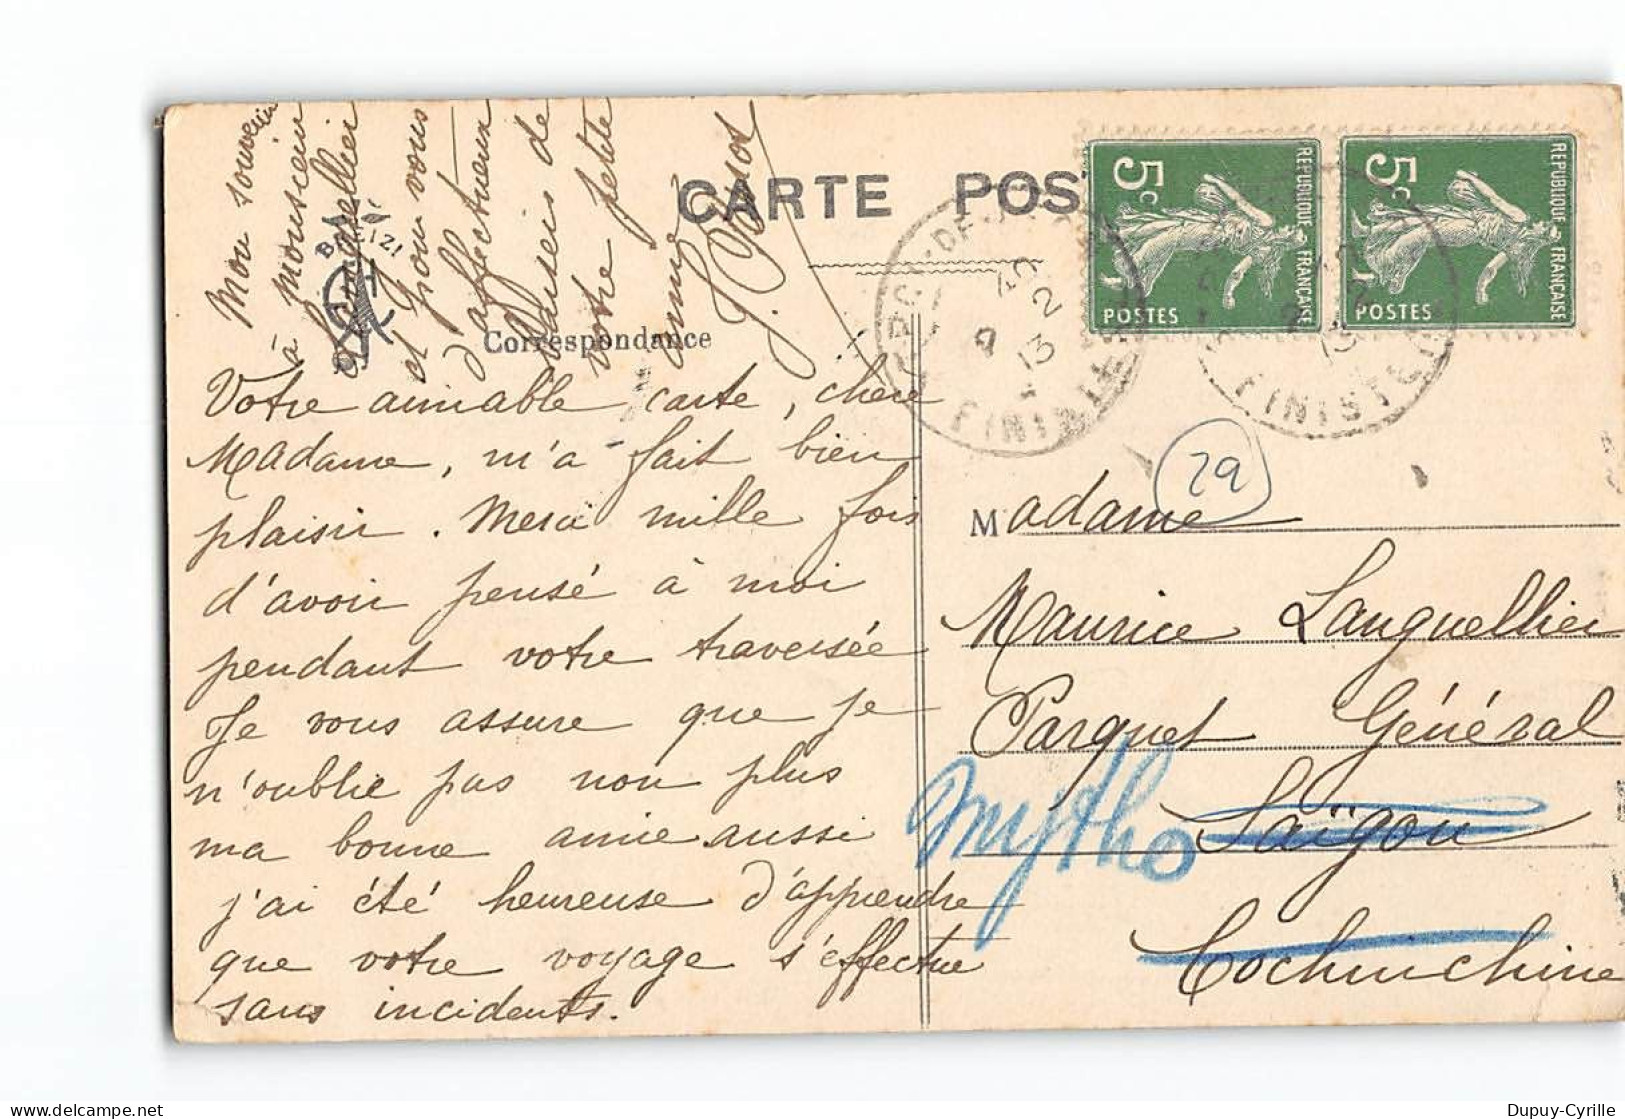 Mon souvenir
à Monsieur
Languellier
et pour vous
d'affectueux
baisers de
votre petite
amie
CARTE POS
BREIZ IZ
Correspondance
RÉPUBLIQUE FRANÇAISE
5c
POSTES
RÉPUBLIQUE FRANÇAISE
5c
POSTES
9 2
13
FINISTÈRE
FINISTÈRE
Votre aimable carte, chère
Madame, m'a fait bien
plaisir. Merci mille fois
d'avoir pensé à moi
pendant votre traversée
Je vous assure que je
n'oublie pas non plus
ma bonne amie aussi
j'ai été heureuse d'apprendre
que votre voyage s'effectue
sans incidents.
29
Madame
Maurice Languellier
Parquet Général
Saïgon
Mytho
Cochinchine
Dupuy-Cyrille